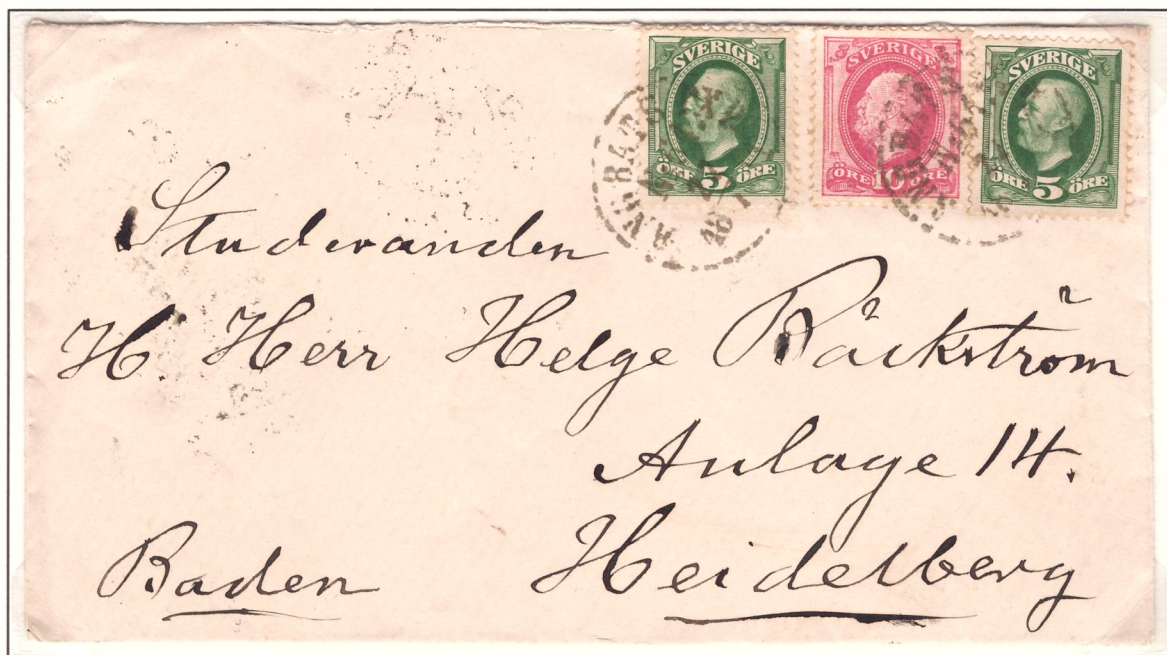 SVERIGE
ÖRE 5 ÖRE
SVERIGE
ÖRE 10 ÖRE
SVERIGE
ÖRE 5 ÖRE
Studeranden
H. Herr Helge Bäckström
Anlage 14.
Heidelberg
Baden